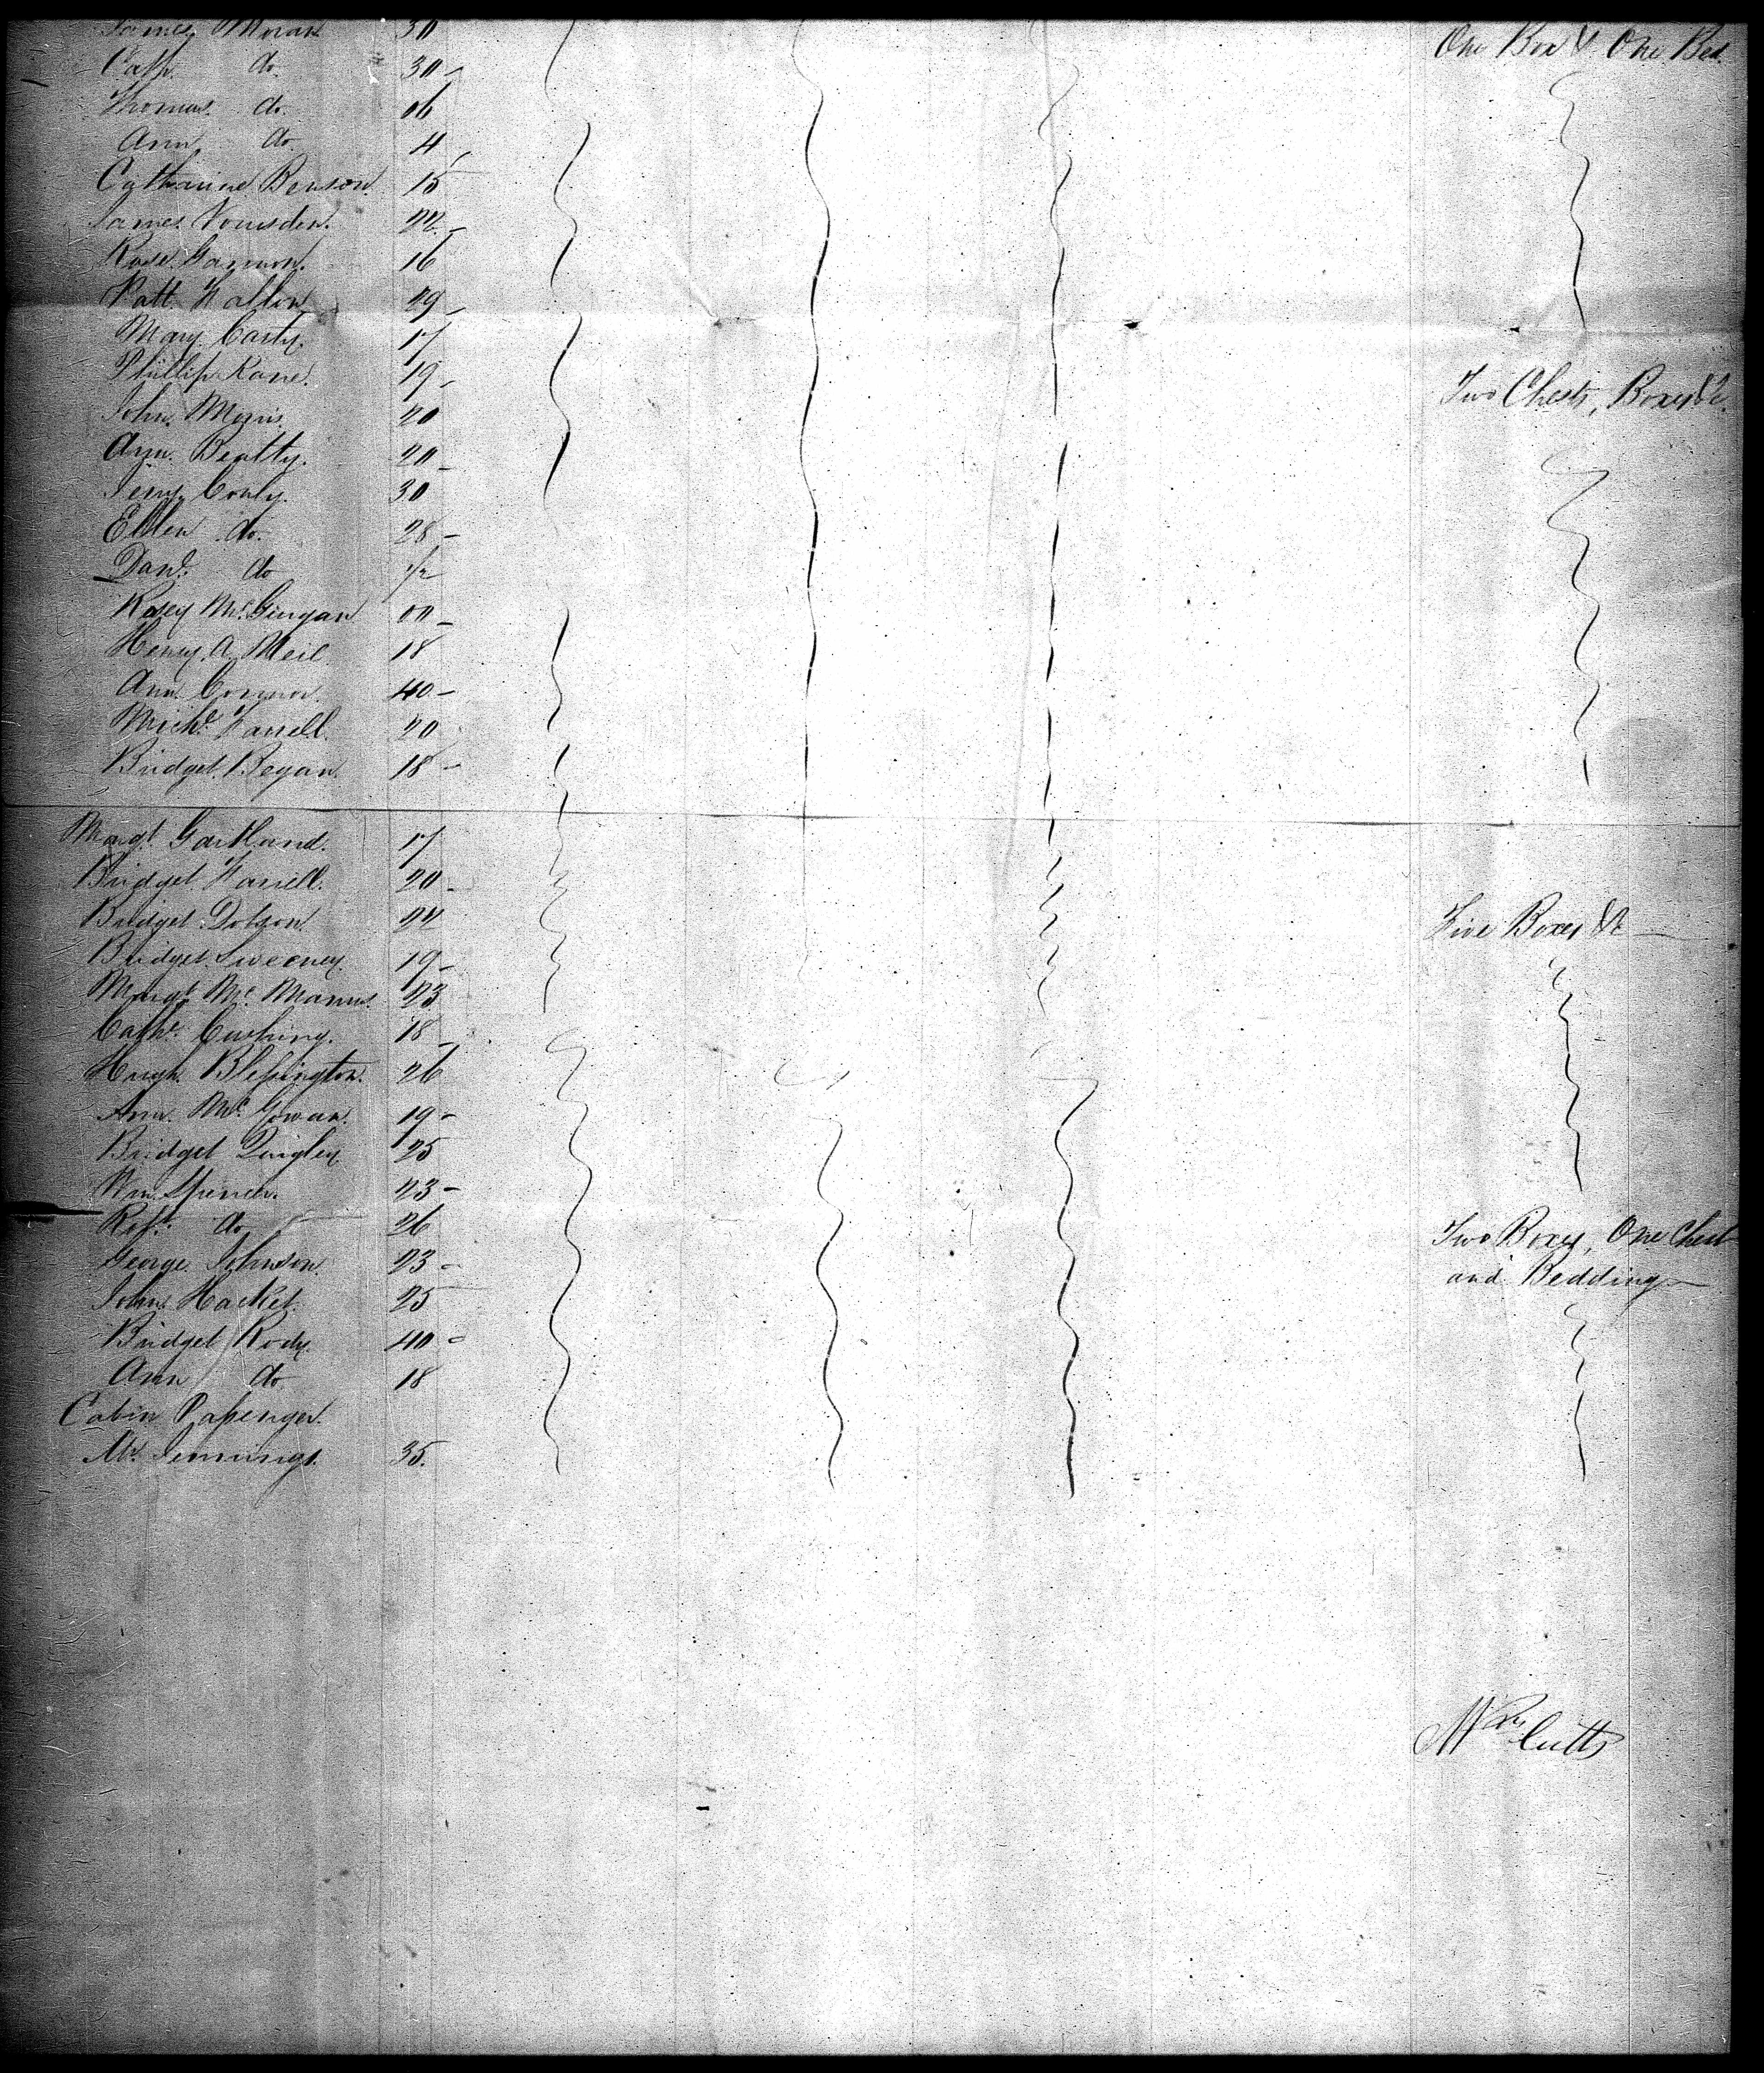 James Moran 30 One Box & One Bed.
Cath. do. 30
Thomas. do. 06
Ann, do 4
Catharine Benson. 15
James 22
Rose Gannon. 16
Patt. Fallon 29
Mary Carty. 17
Phillip Kane. 19
John. Morris. 20 Two Chests, Boxes &c.
Ann. Beatty. 20
Conly. 30
Ellen do. 28
Danl. do 1/2
Rosey Mc. 00
Henry. A. Meil 18
Ann. Connor. 40
Michl. Farrell. 20
Bridget. Began. 18
Margt. Gartland. 17
Bridget Farrell. 20
Bridget Dobson 24 Five Boxes &c
Bridget. Sweeney. 19
Margt. Mc. Manus. 23
Cathe. Cushing. 18
Hugh. Blessington. 26
Ann. Mc. Gowan. 19
Bridget Quigley 25
Wm. Spence. 23
do 26 Two Boxes, One Chest
George. Johnson. 23 and Bedding
John Hacket. 25
Bridget Rody. 40
Ann do. 18
Cabin Passenger.
Mr. Jennings. 35.
Wm. Cutts